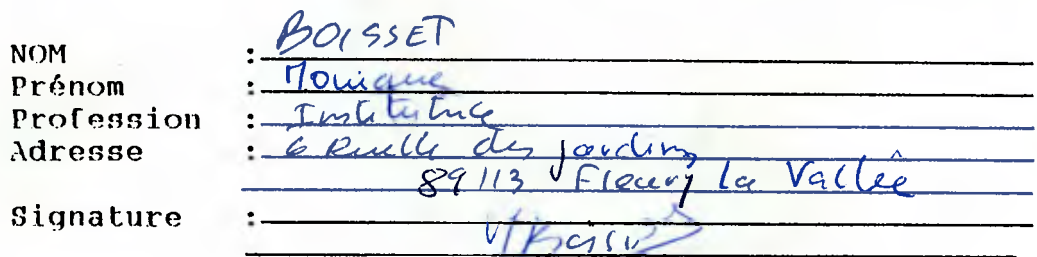 NOM : BOISSET
Prénom : Monique
Profession : Institutrice
Adresse : 6 Ruelle des jardins
89113 Fleury la Vallée
Signature :